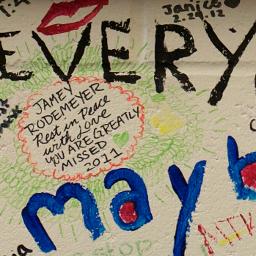 Janice
2.24.12
EVERY
JAMEY
RODEMEYER
Rest in Peace
with Love
YOU ARE GREATLY
MISSED
2011
mayb
stop